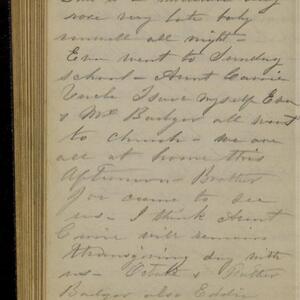 rose very late baby
unwell all night -
Eva went to Sunday
school - Aunt Carrie
Uncle Isaac myself Eva
& Mr Badger all went
to church - we are
all at home this
Afternoon - Brother
Joe came to see
us - I think Aunt
Carrie will remain
thanksgiving day with
us - &
Badger also Eddie